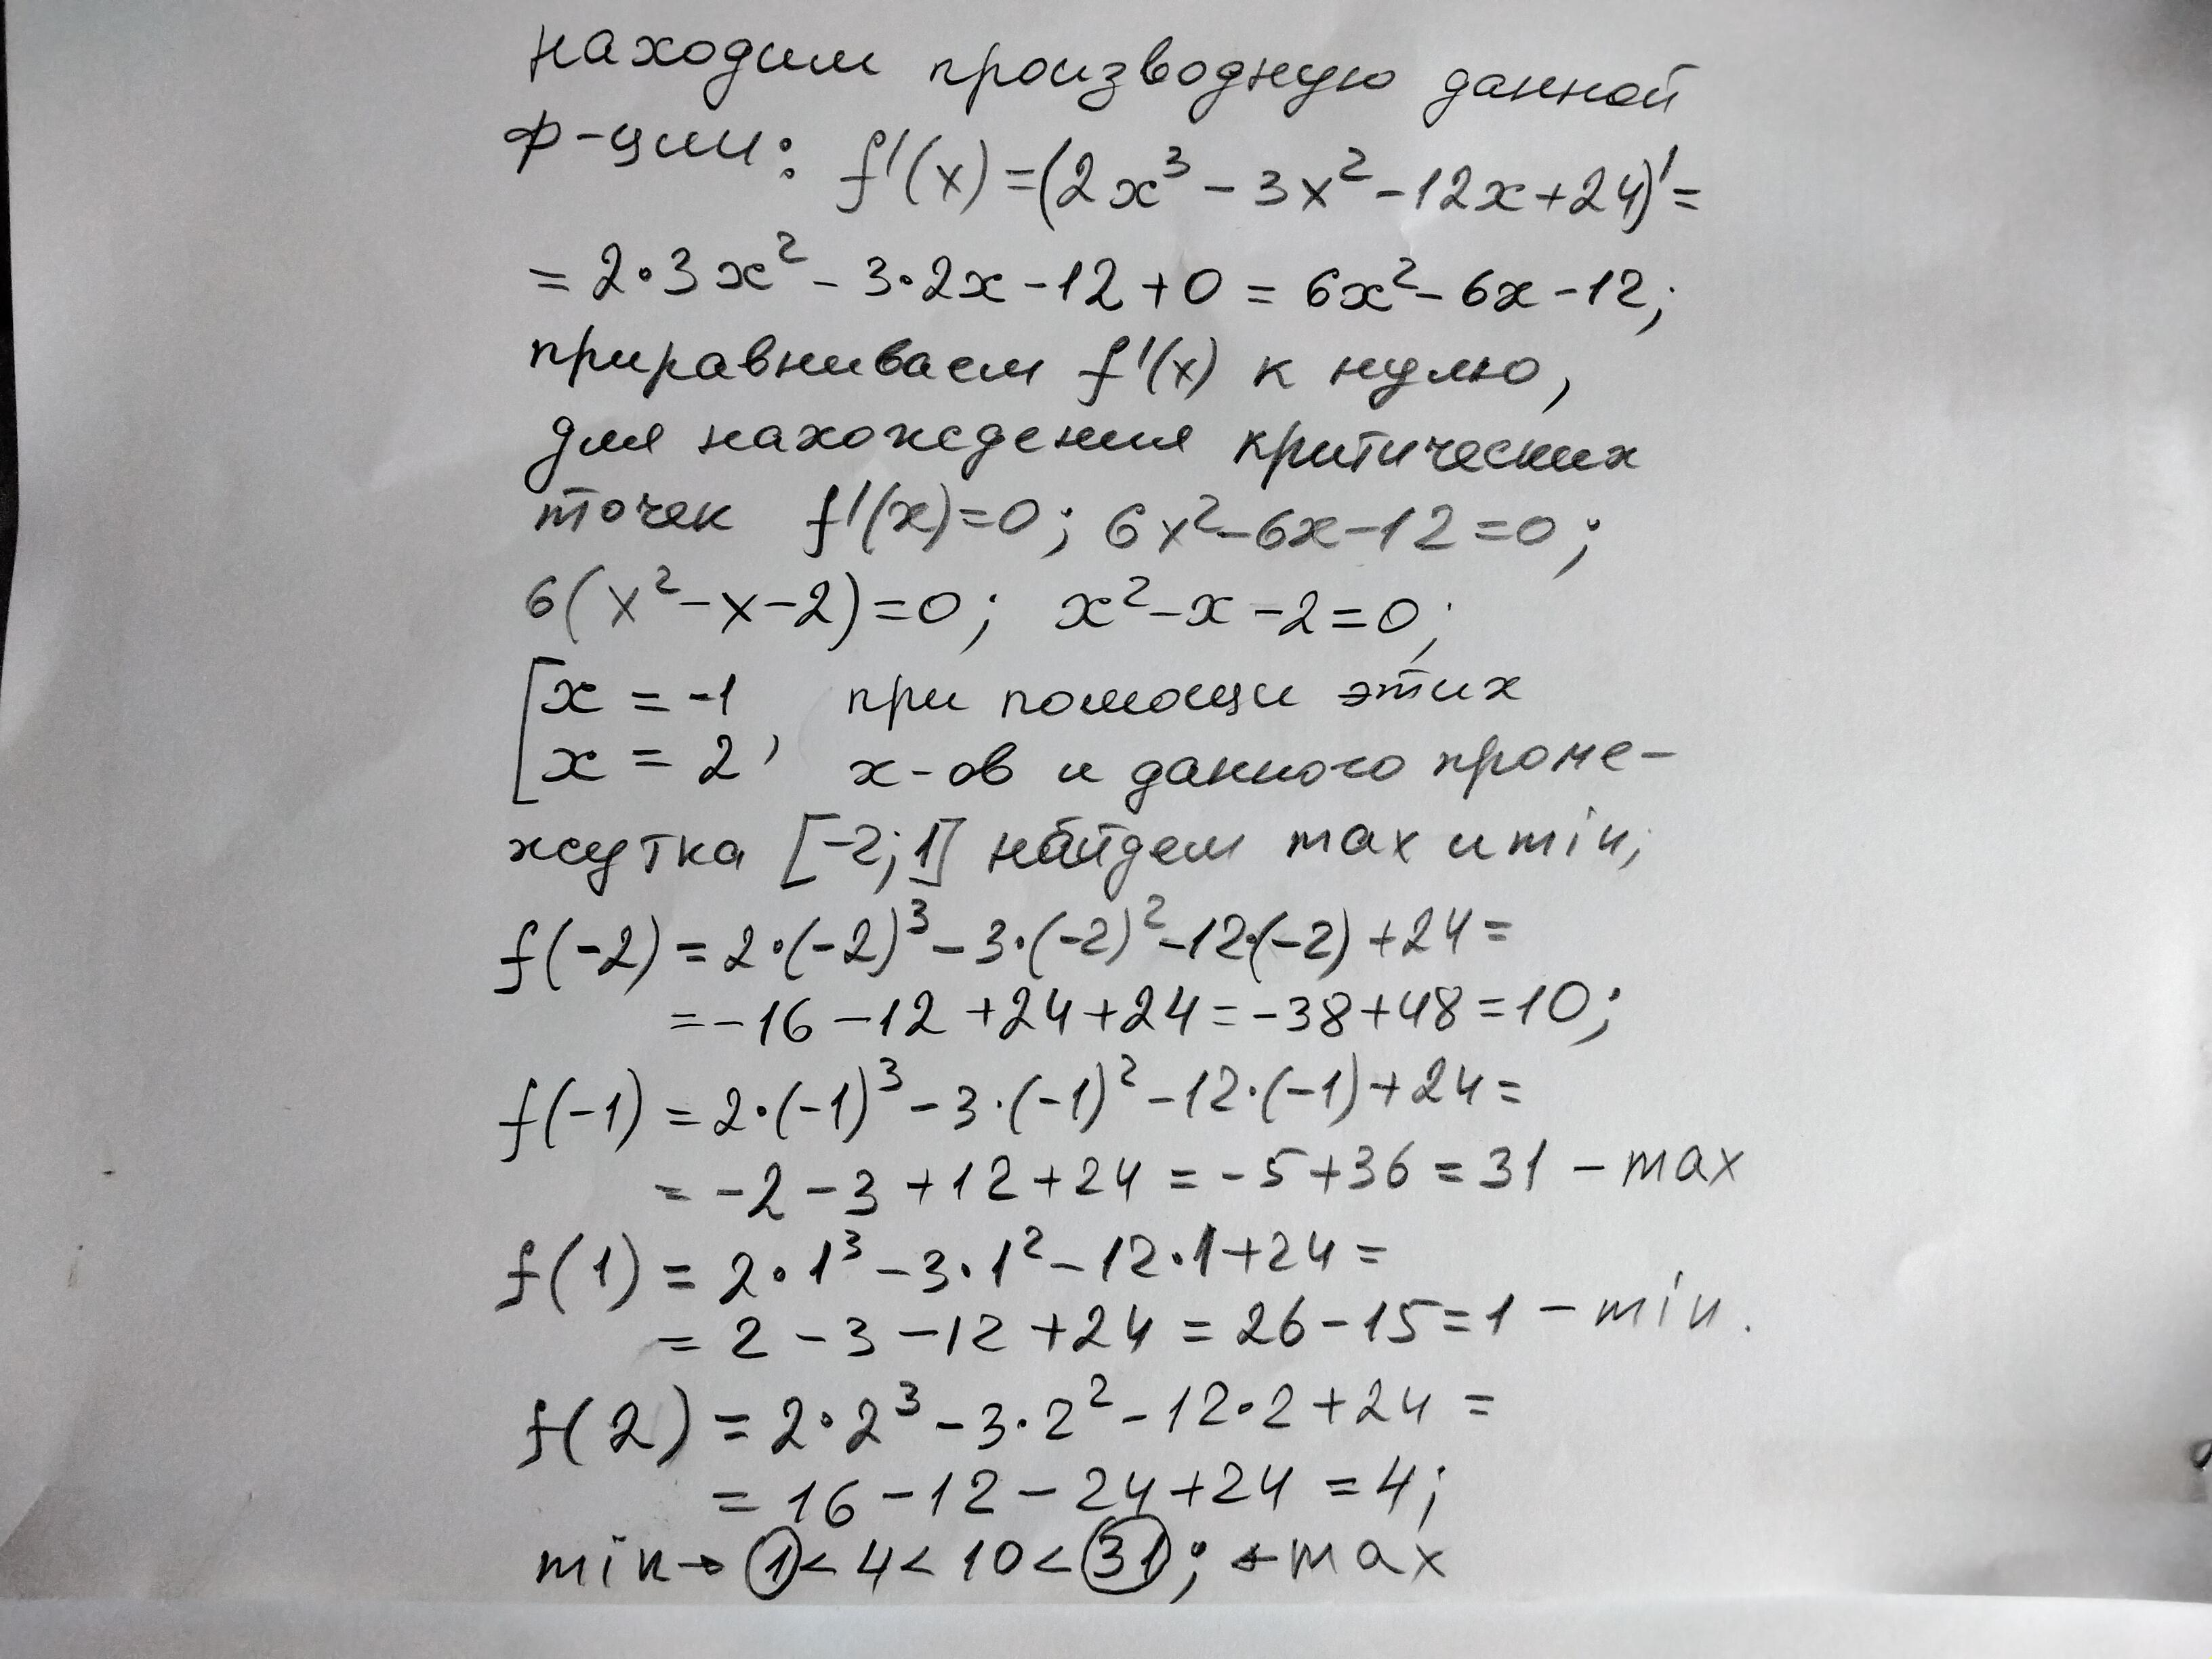 находим производную данной
ф-ции: f'(x) = (2x³ - 3x² - 12x + 24)' =
= 2·3x² - 3·2x - 12 + 0 = 6x² - 6x - 12;
приравниваем f'(x) к нулю,
для нахождения критических
точек f'(x) = 0; 6x² - 6x - 12 = 0;
6(x² - x - 2) = 0; x² - x - 2 = 0;
[x = -1 при помощи этих
[x = 2, х-ов и данного проме-
жутка [-2; 1] найдем max и min;
f(-2) = 2·(-2)³ - 3·(-2)² - 12·(-2) + 24 =
= -16 - 12 + 24 + 24 = -38 + 48 = 10;
f(-1) = 2·(-1)³ - 3·(-1)² - 12·(-1) + 24 =
= -2 - 3 + 12 + 24 = -5 + 36 = 31 - max
f(1) = 2·1³ - 3·1² - 12·1 + 24 =
= 2 - 3 - 12 + 24 = 26 - 15 = 1 - min.
f(2) = 2·2³ - 3·2² - 12·2 + 24 =
= 16 - 12 - 24 + 24 = 4;
min → 1 < 4 < 10 < 31; ← max